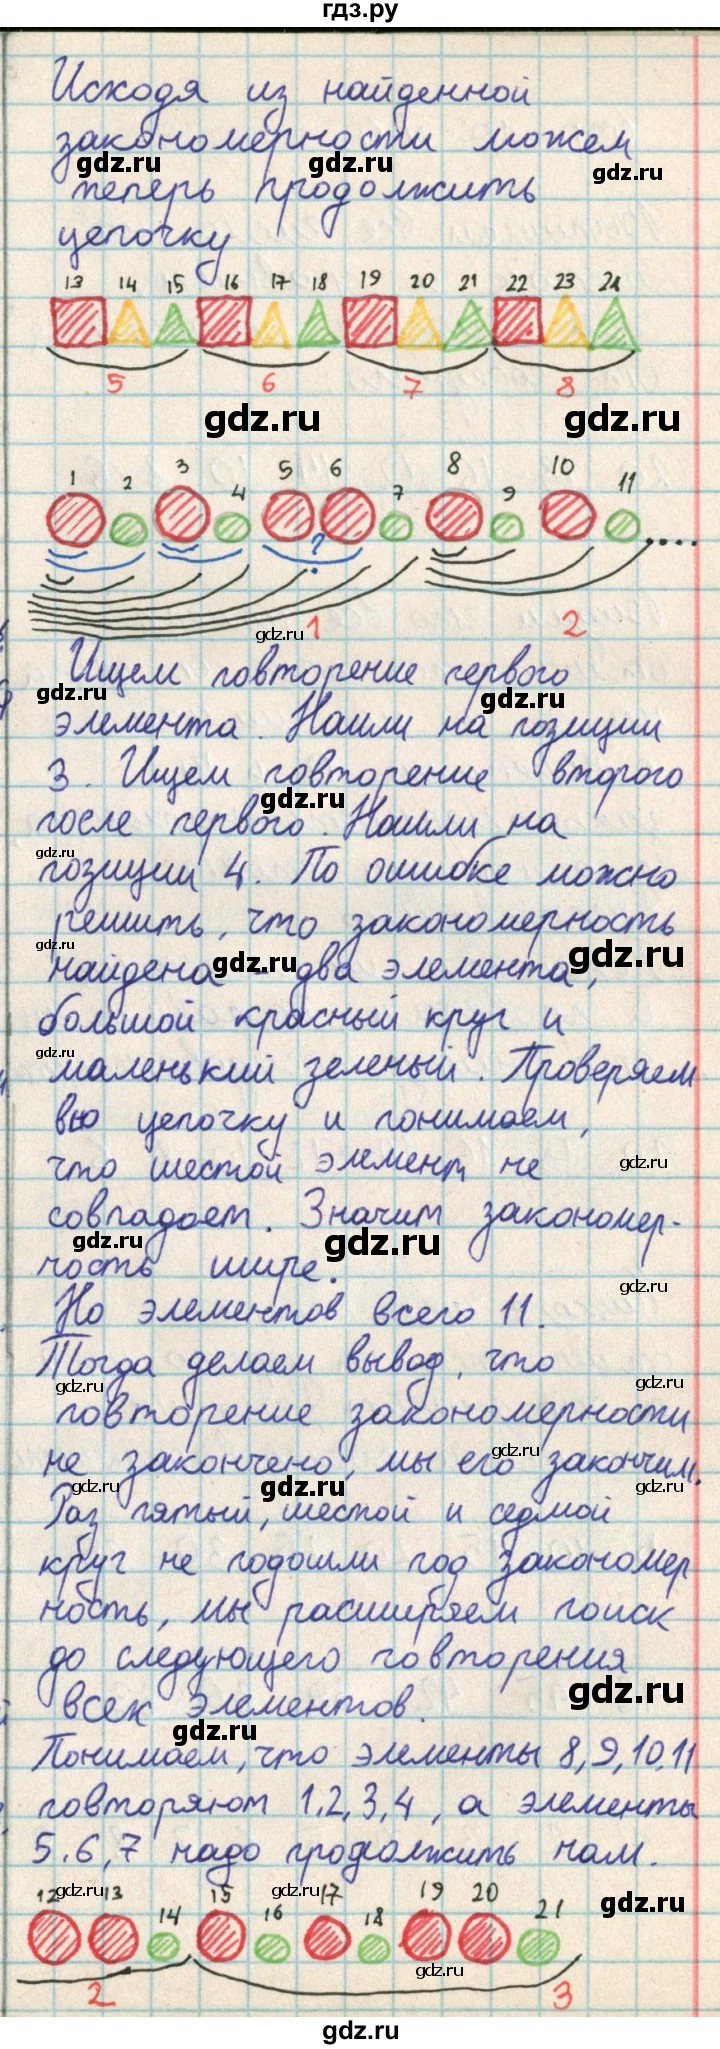 гдз.ру
Исходя из найденной
закономерности можем
теперь продолжить
цепочку
gdz.ru gdz.ru gdz.ru
13 14 15 16 17 18 19 20 21 22 23 24
5 6 7 8
gdz.ru gdz.ru
1 2 3 4 5 6 7 8 9 10 11
?
1 2
gdz.ru
Ищем повторение первого
gdz.ru gdz.ru
элемента. Нашли на позиции
3. Ищем повторение второго
gdz.ru
после первого. Нашли на
gdz.ru
позиции 4. По ошибке можно
решить, что закономерность
gdz.ru gdz.ru gdz.ru
найдена - два элемента,
большой красный круг и
gdz.ru
маленький зеленый. Проверяем
всю цепочку и понимаем,
что шестой элемент не
gdz.ru
совпадает. Значит закономер-
gdz.ru gdz.ru
ность шире.
gdz.ru
Но элементов всего 11.
Тогда делаем вывод, что
gdz.ru gdz.ru
повторение закономерности
не закончено, мы его закончим.
gdz.ru gdz.ru gdz.ru gdz.ru
Раз пятый, шестой и седмой
круг не подошли под закономер
ность, мы расширяем поиск
до следующего повторения
gdz.ru
всех элементов.
gdz.ru
Понимаем, что элементы 8,9,10,11
повторяют 1,2,3,4, а элементы
5,6,7 надо продолжить нам.
gdz.ru gdz.ru gdz.ru
12 13 14 15 16 17 18 19 20 21
gdz.ru
2 3
gdz.ru